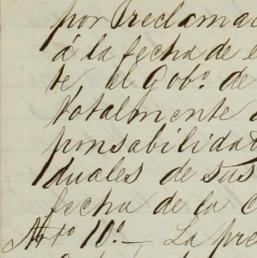 por reclama
á la fecha de e
te, el Gobº. de
totalmente
ponsabilidad
duales de sus
fecha de la C
10º.— La pre